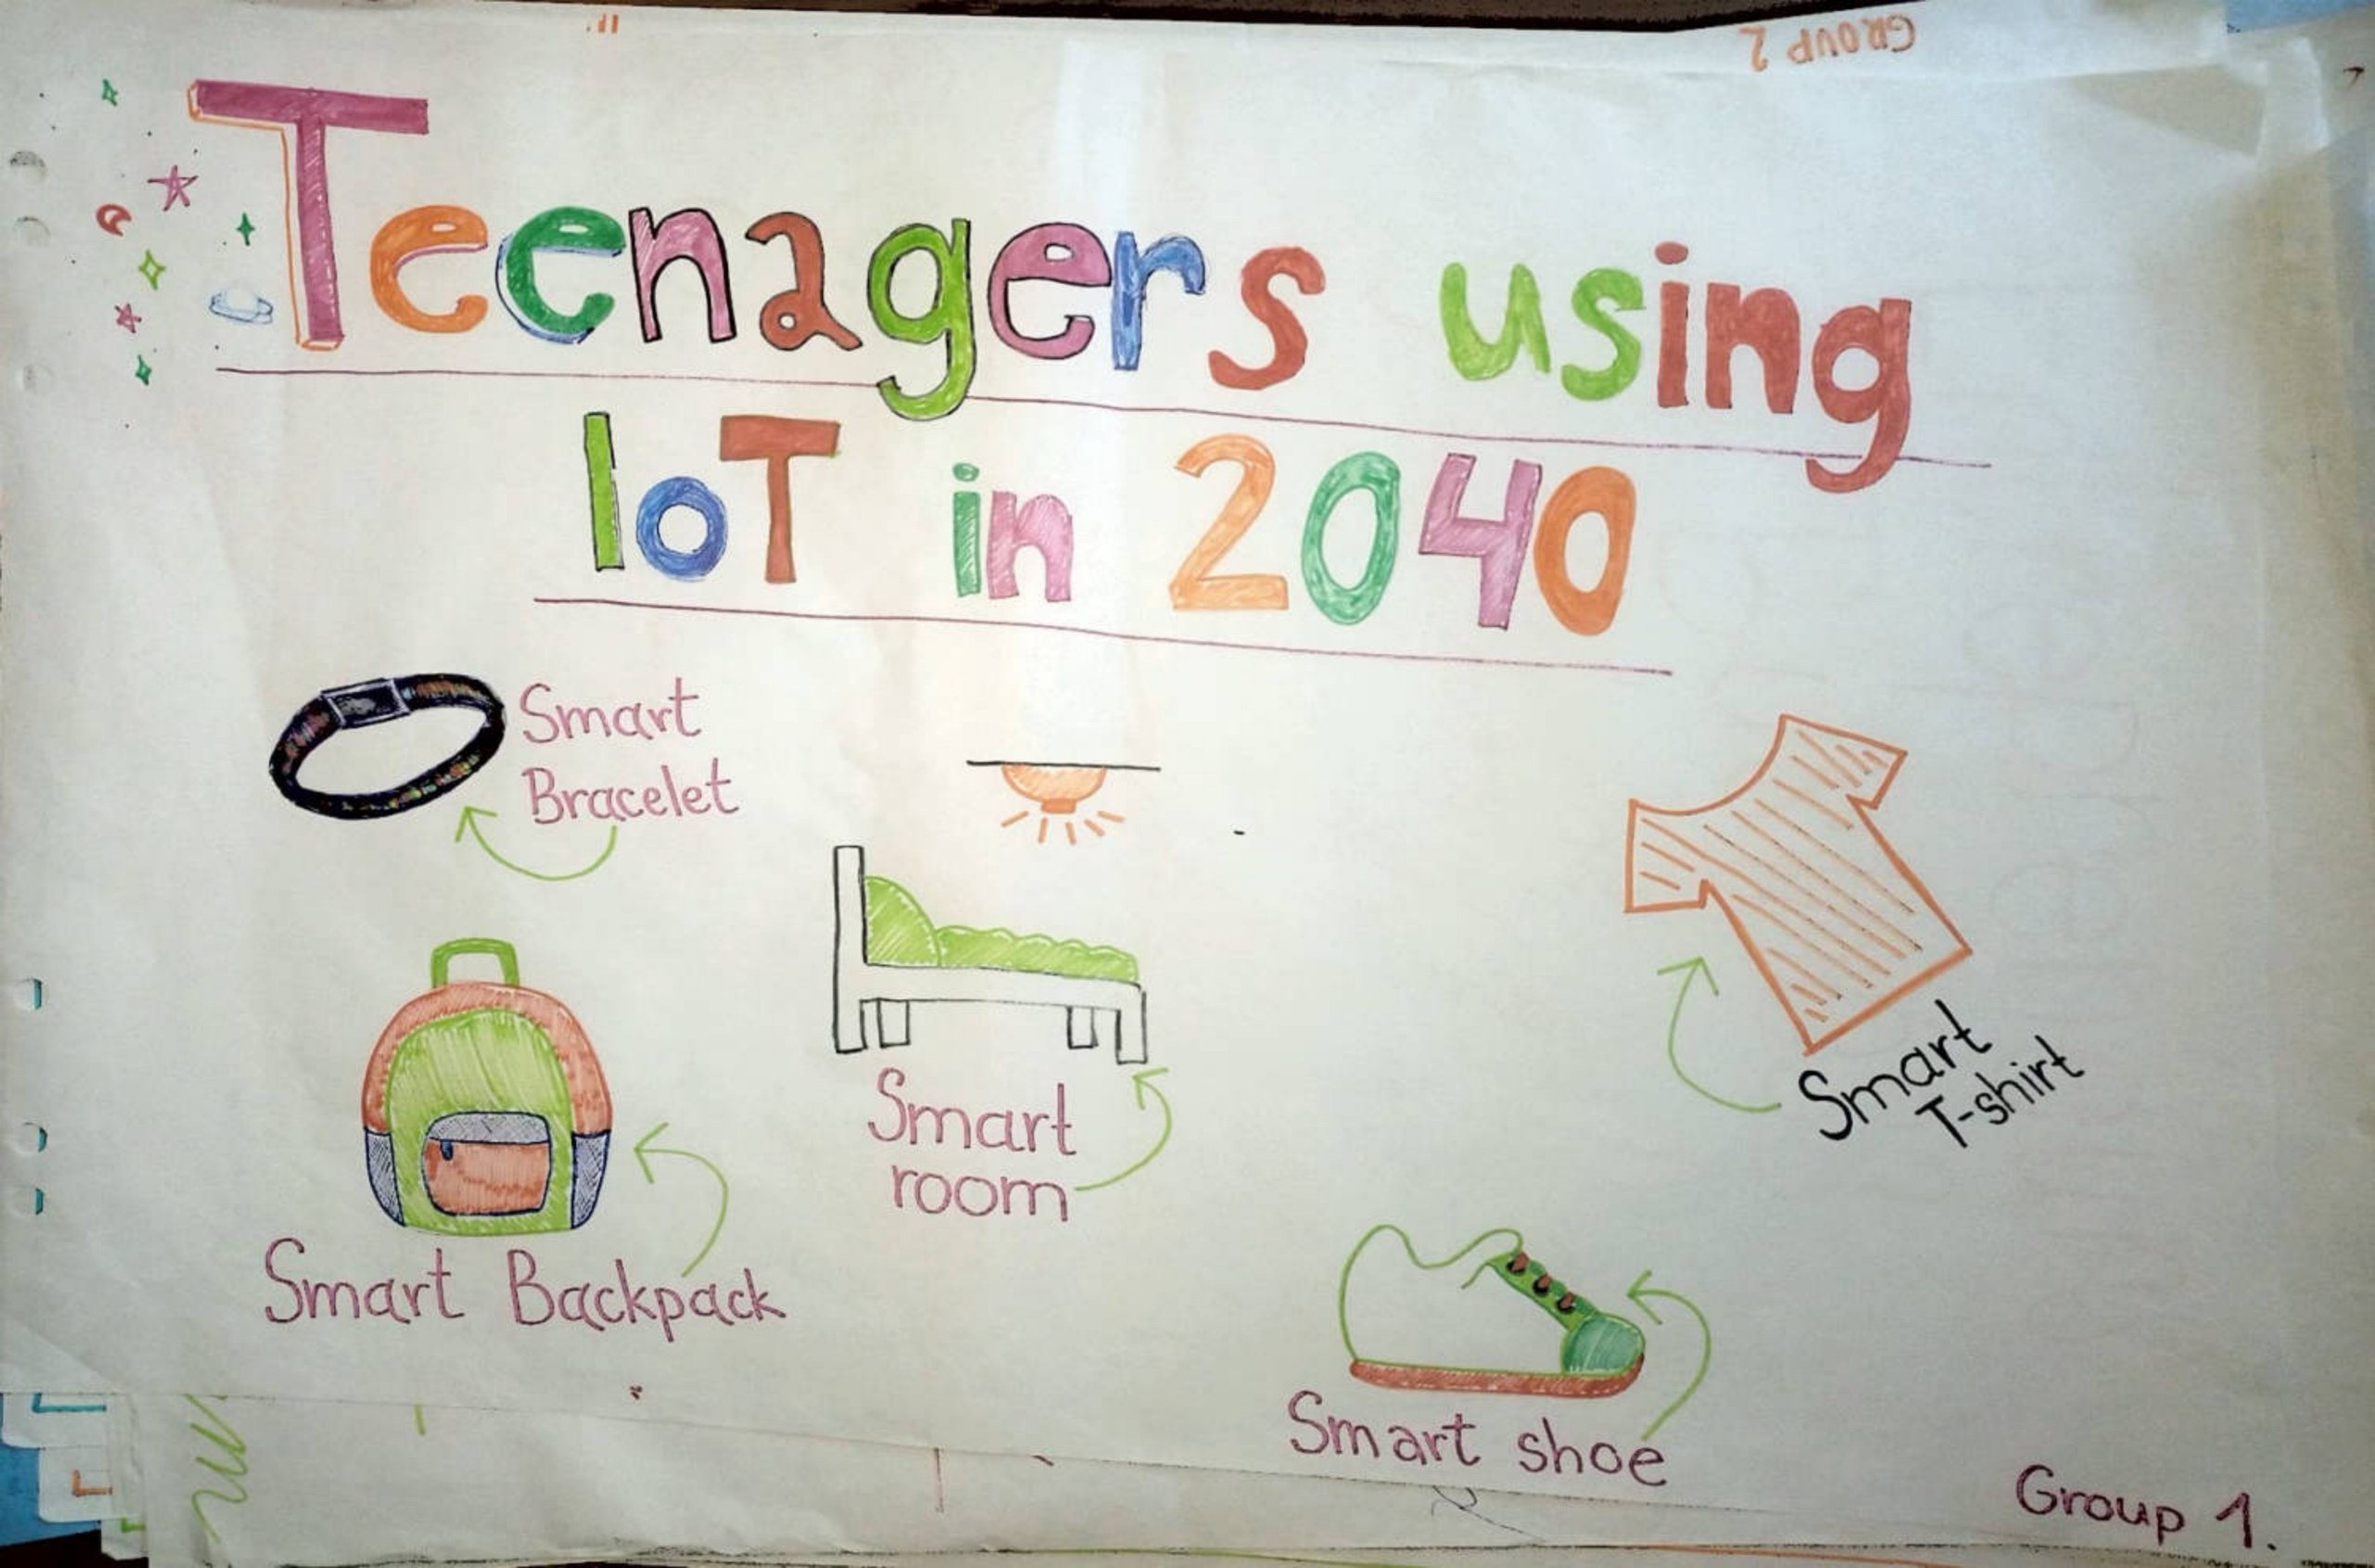 GROUP 2
Teenagers using
IoT in 2040
Smart
Bracelet
Smart
room
Smart
T-shirt
Smart Backpack
Smart shoe
Group 1.